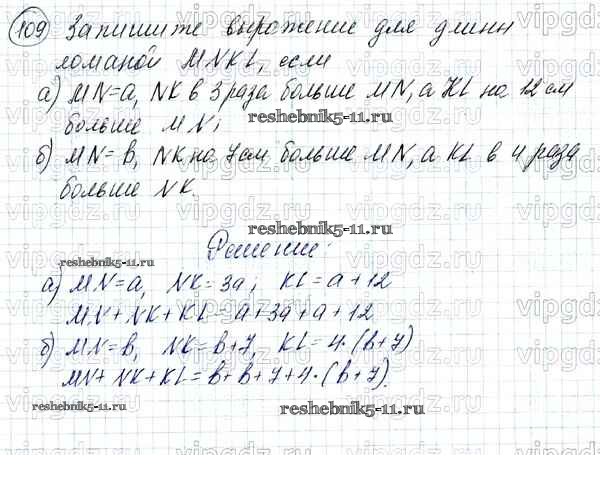 109 Запишите выражение для длины
ломаной MNKL, если
а) MN=a, NK в 3 раза больше MN, а KL на 12 см
больше MN;
reshebnik5-11.ru
б) MN=в, NK на 7 см больше MN, а KL в 4 раза
больше NK.
reshebnik5-11.ru
Решение:
reshebnik5-11.ru
а) MN=a, NK=3a; KL=a+12
MN+NK+KL=a+3a+a+12
б) MN=в, NK=в+7, KL=4·(в+7)
MN+NK+KL=в+в+7+4·(в+7).
reshebnik5-11.ru
reshebnik5-11.ru
vipgdz.ru